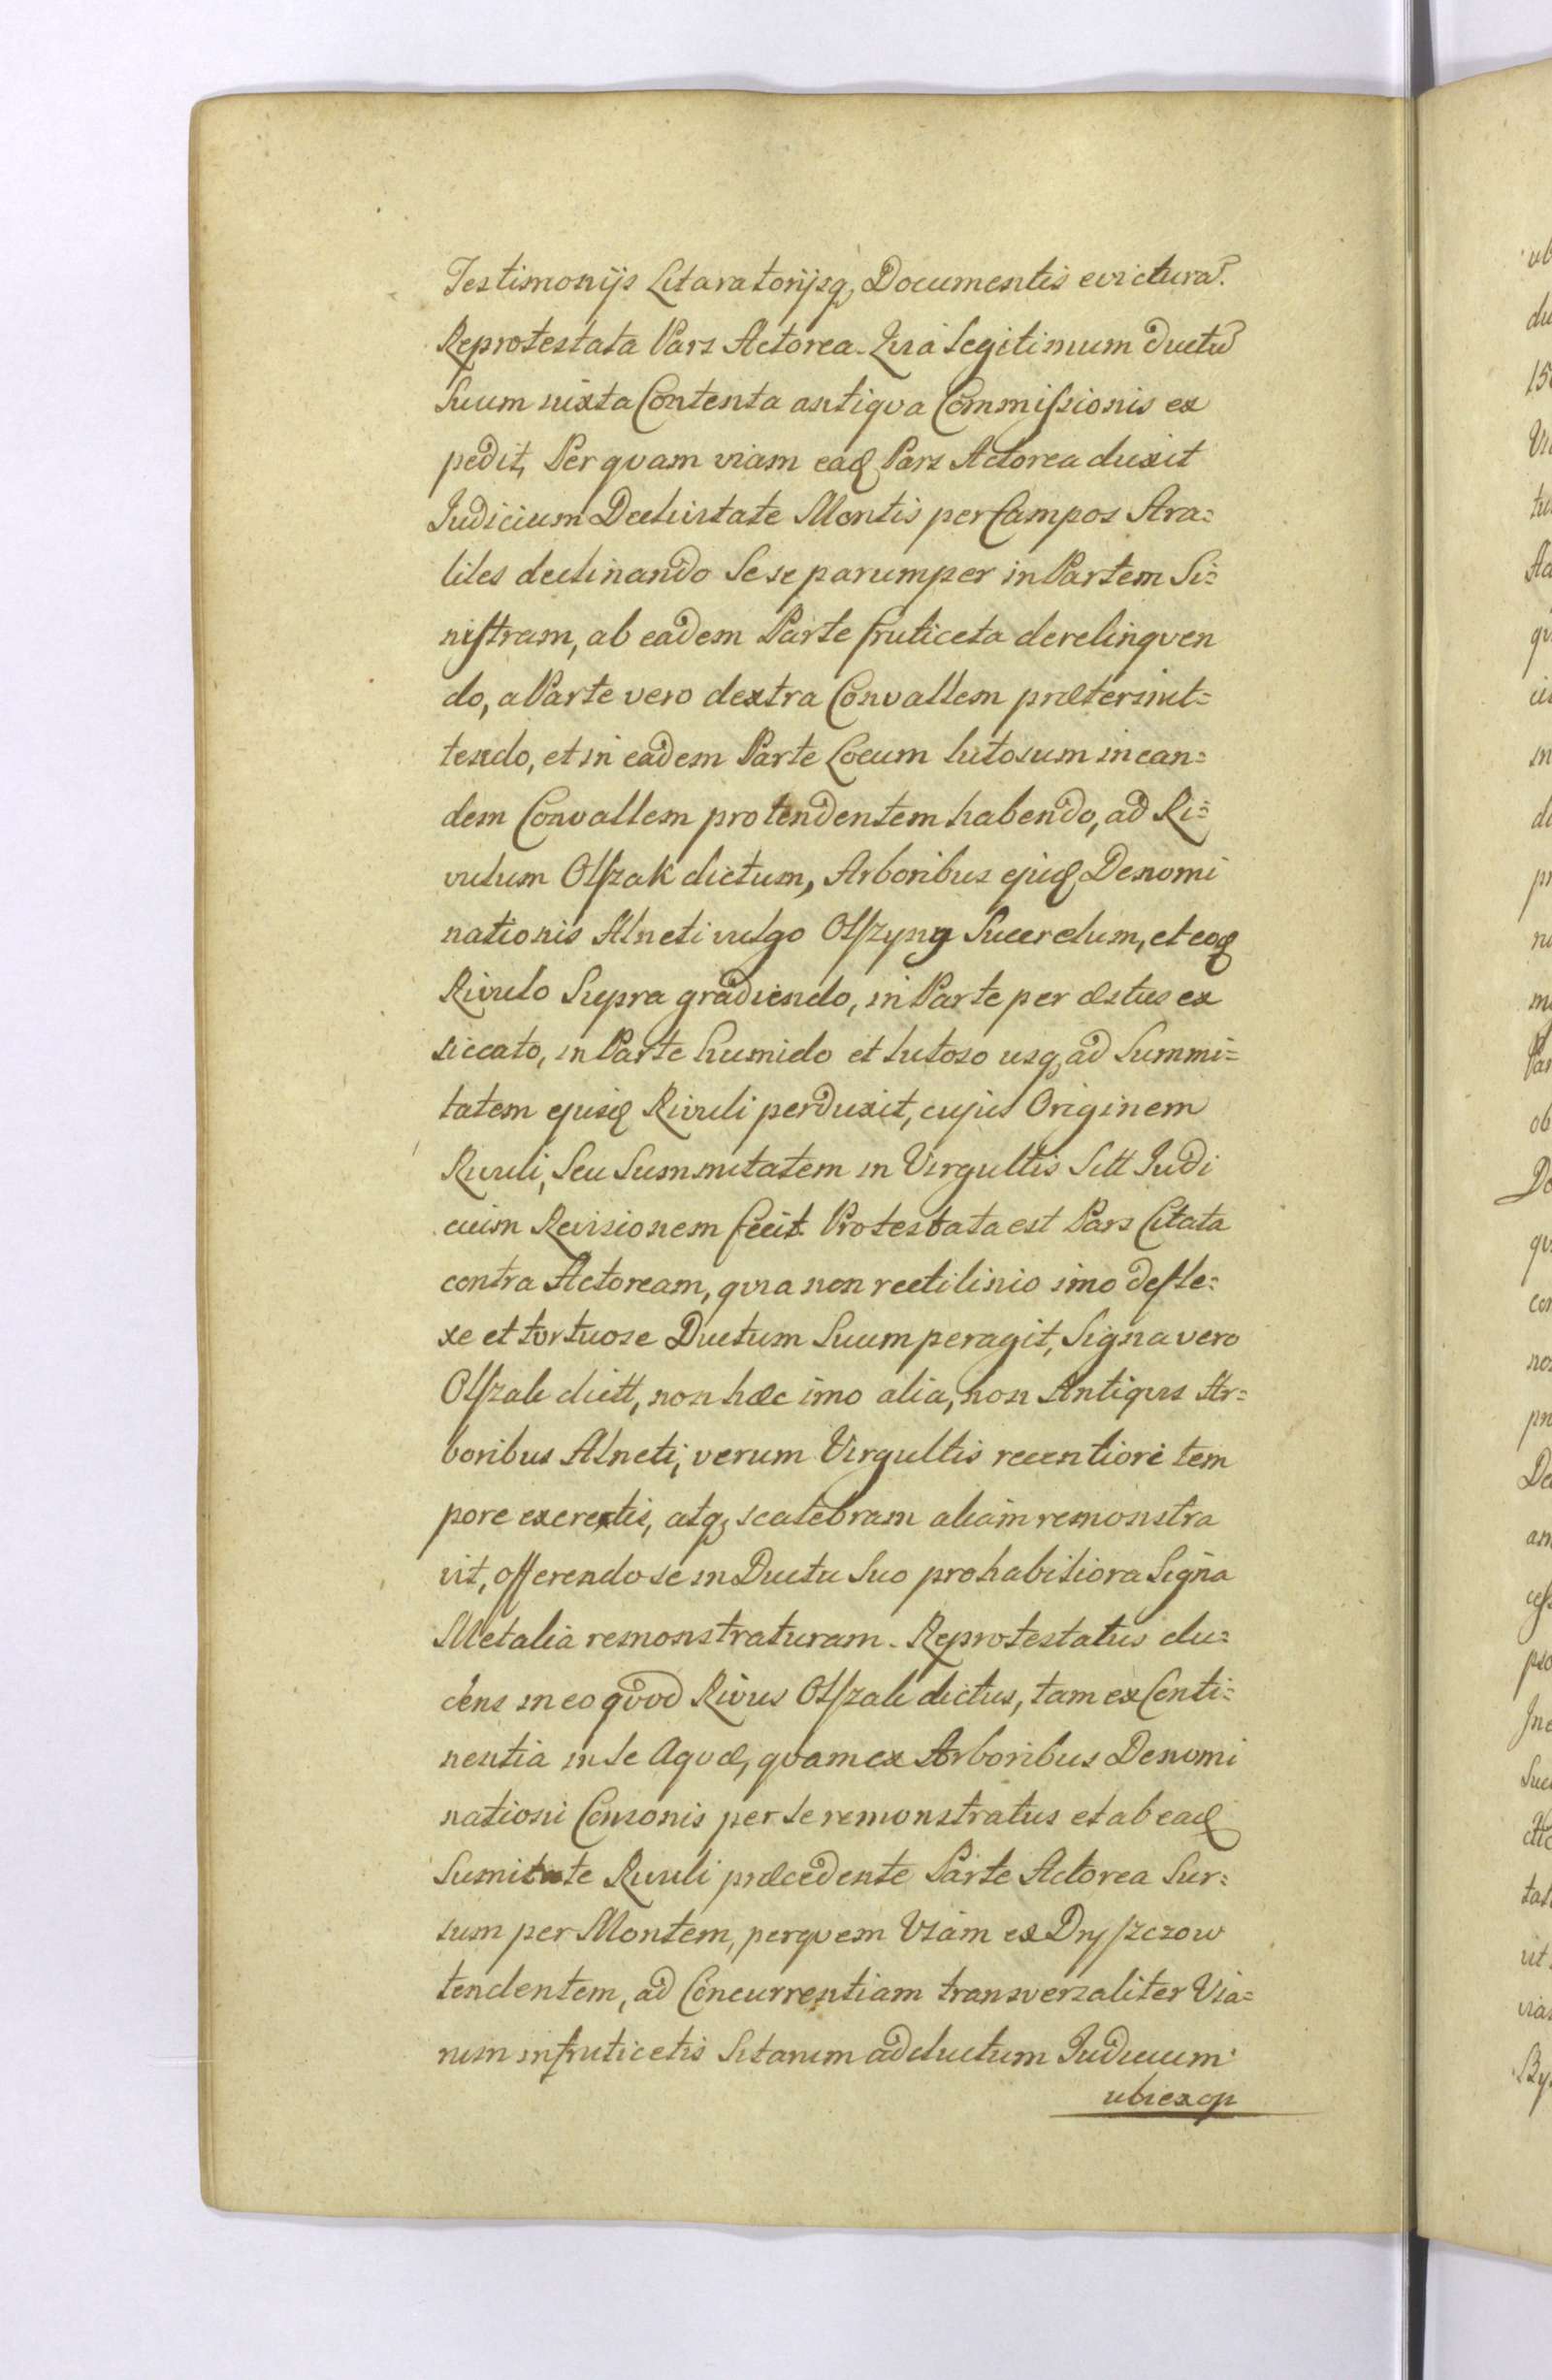 Testimonijs Litaratorijsq, Documentis evictura.
Reprotestata Pars Actorea. Quia legitimum ductu
Suum iuxta Contenta antiqva Commissionis ex
pedit, Per qvam viam eaq Pars Actorea duxit
Iudicium Declivitate Montis per Campos Ara=
liles declinando Sese parumper in Partem Si=
nistram, ab eadem Parte fruticeta derelinqven
do, a Parte vero dextra Convallem prætermit=
tendo, et in eadem Parte Locum lutosum in ean=
dem Convallem protendentem habendo, ad Ri=
vulum Olszak dictum, Arboribus ejuq Denomi
nationis Alneti vulgo Olszyng Sucerelum, et eoq
Rivulo Supra gradiendo, in Parte per æstus ex
siccato, in Parte humido et lutoso usq, ad Summi=
tatem ejusq Rivuli perduxit, cujus Originem
Rivuli, Seu Summitatem in Virgultis Sitt Judi
cium Revisionem fecit. Protestata est Pars Citata
contra Actoream, qvia non rectilinio imo defle=
xe et tortuose Ductum Suum peragit, Signa vero
Olszak dictt, non hæc imo alia, non Antiqvis Ar=
boribus Alneti, verum Virgultis recentiori tem
pore excrextis, atq, scatebram aliam remonstra
vit, offerendo se in Ductu Suo prohabiliora Signa
Metalia remonstraturam. Reprotestatus du=
cens in eo qvod Rivus Olszak dictus, tam ex Conti=
nentia in Se Aqvæ, qvam ex Arboribus Denomi
nationi Consonis per Se remonstratus et ab eaq
Sumitate Rivuli præcedente Parte Actorea Sur=
sum per Montem, perqvem Viam ex Dryszczow
tendentem, ad Concurrentiam transversaliter Via=
rum in fruticetis Sitarum adductum Judicium
ubi ex op